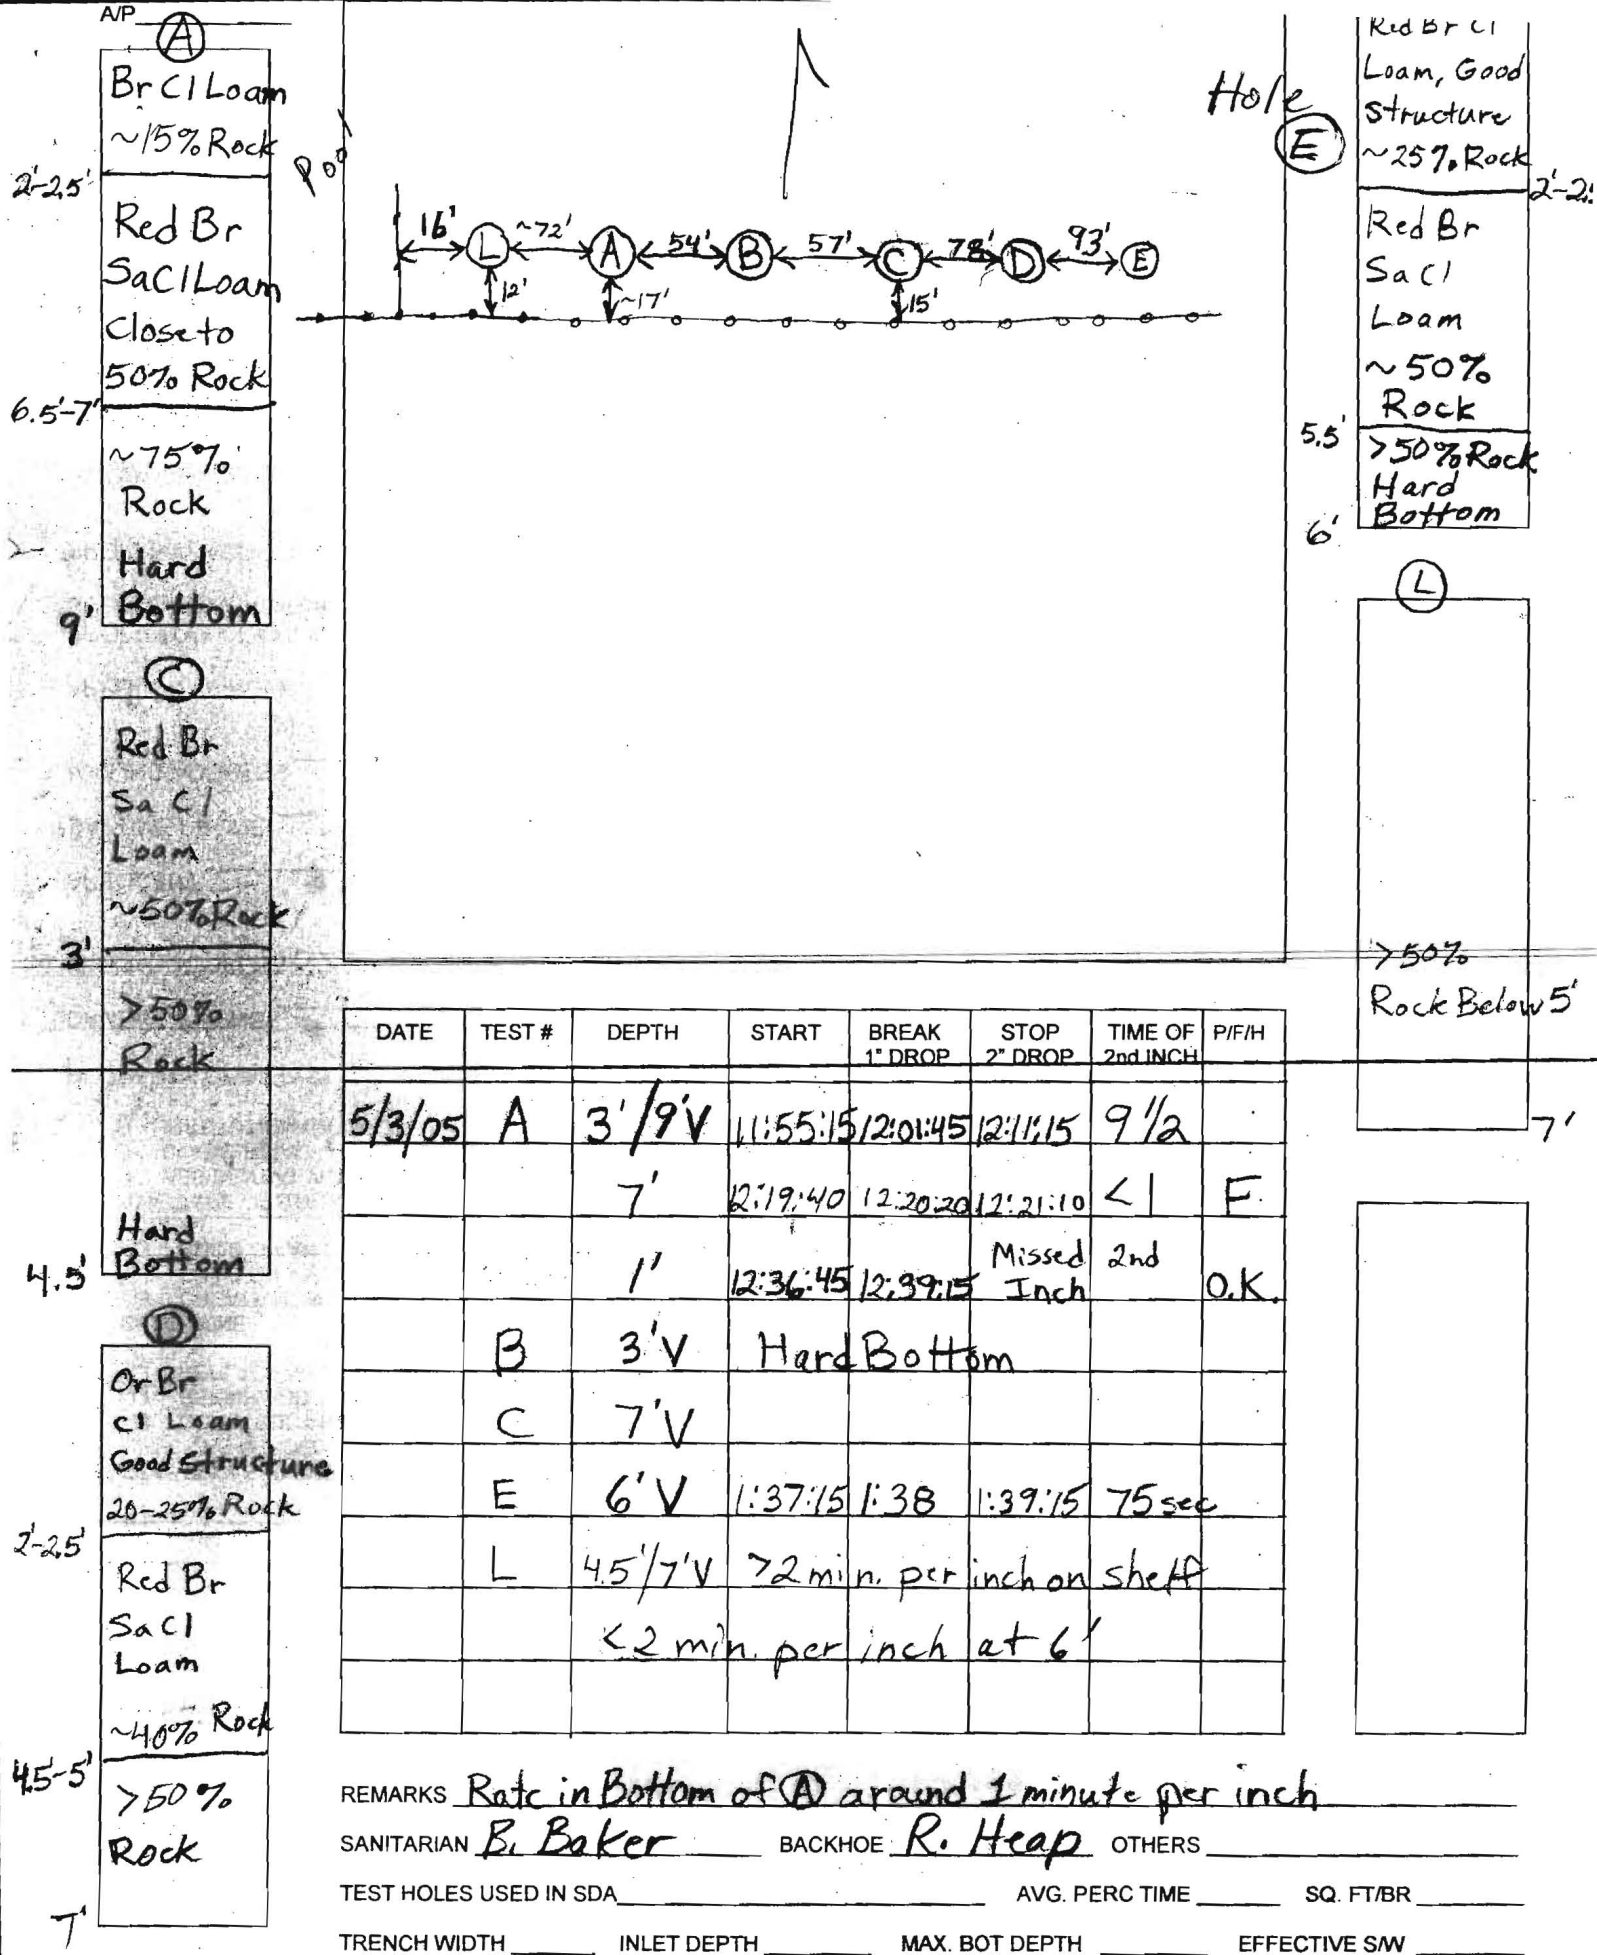 A/P
A
Br Cl Loam
~15% Rock
2'-2.5'
Red Br
SaClLoam
Close to
50% Rock
6.5'-7'
~75%
Rock
Hard
Bottom
9'
C
Red Br
Sa Cl
Loam
~50% Rock
3'
>50%
Rock
Hard
Bottom
4.5'
D
Or Br
Cl Loam
Good Structure
20-25% Rock
2'-2.5'
Red Br
SaCl
Loam
~40% Rock
4.5'-5'
>50%
Rock
7'
Pool
16' L ~72' A 54' B 57' C 78' D 93' E
12' ~17' 15'
Hole
E
Red Br Cl
Loam, Good
Structure
~25% Rock
Red Br
Sa Cl
Loam
~50%
Rock
5.5'
>50% Rock
Hard
Bottom
6'
L
>50%
Rock Below 5'
7'
DATE TEST # DEPTH START BREAK 1" DROP STOP 2" DROP TIME OF 2nd INCH P/F/H
5/3/05 A 3'/9'V 11:55:15 12:01:45 12:11:15 9 1/2
7' 12:19:40 12:20:20 12:21:10 <1 F
1' 12:36:45 12:39:15 Missed 2nd Inch O.K.
B 3'V Hard Bottom
C 7'V
E 6'V 1:37:15 1:38 1:39:15 75 sec
L 4.5'/7'V >2 min. per inch on shelf
<2 min. per inch at 6'
REMARKS Rate in Bottom of A around 1 minute per inch
SANITARIAN B. Baker BACKHOE R. Heap OTHERS
TEST HOLES USED IN SDA AVG. PERC TIME SQ. FT/BR
TRENCH WIDTH INLET DEPTH MAX. BOT DEPTH EFFECTIVE S/W